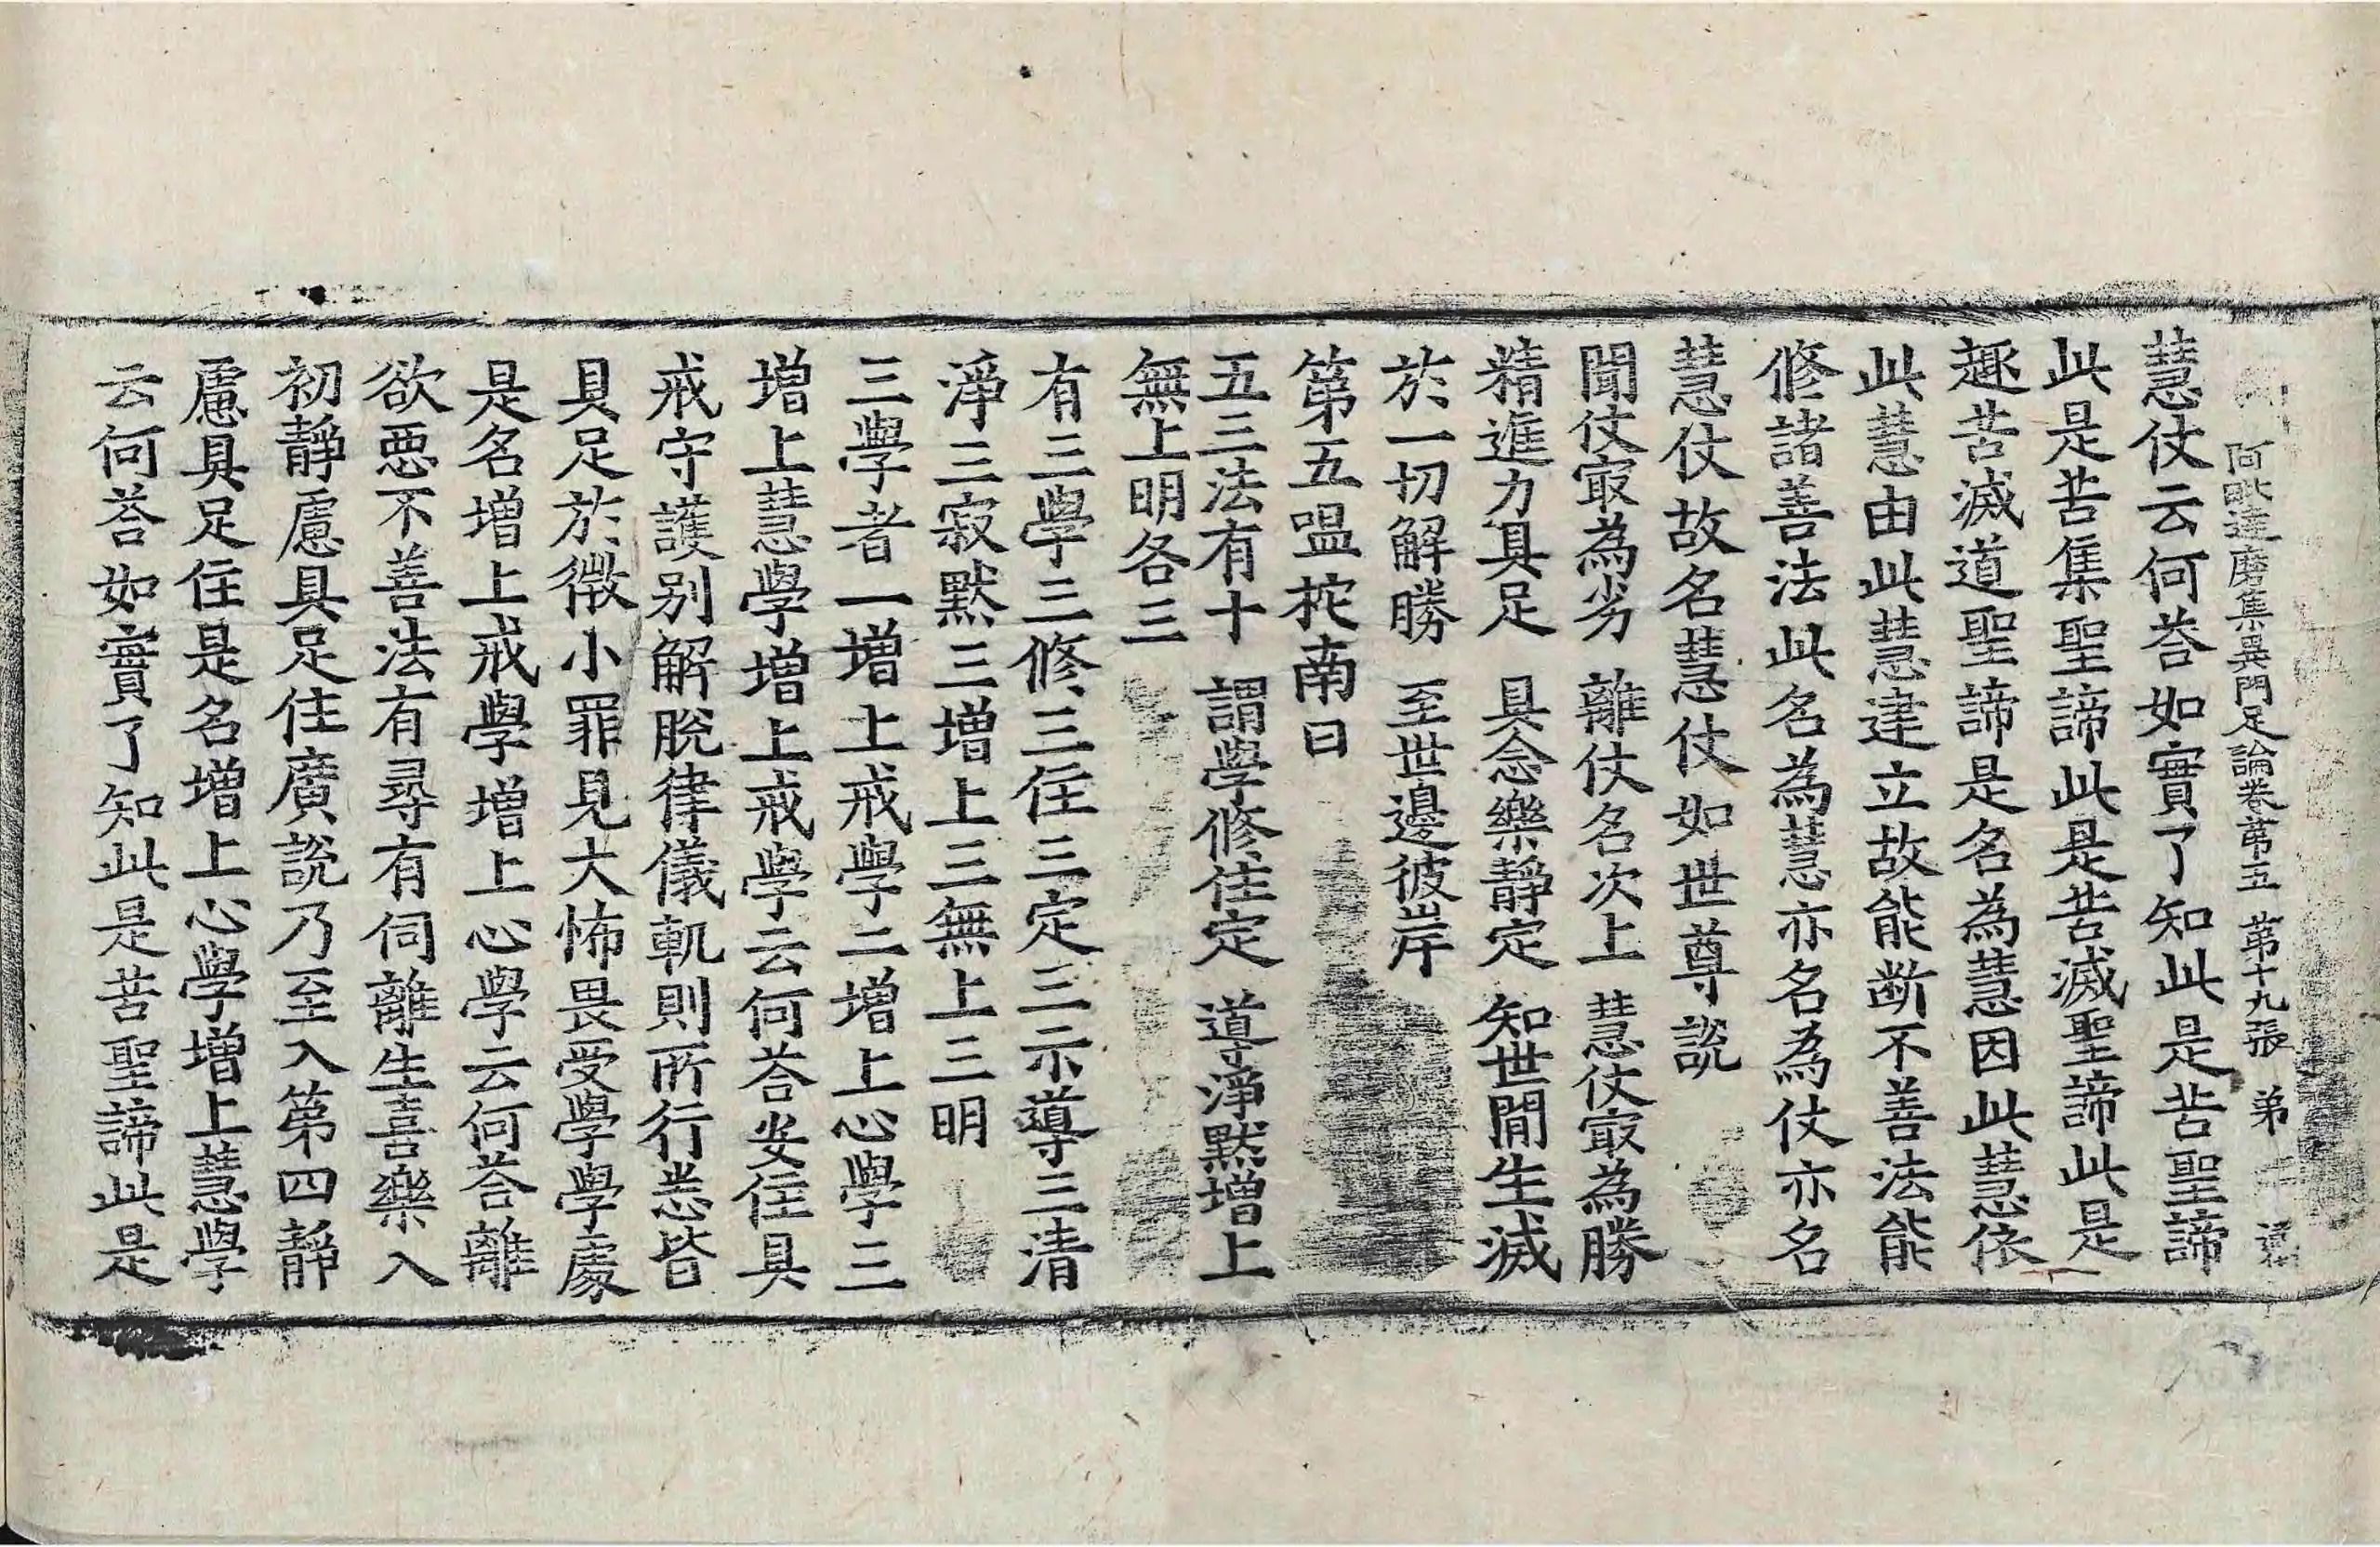 阿毗達磨集異門足論卷第五 第十九張 弟
慧仗云何荅如實了知此是苦聖諦
此是苦集聖諦此是苦滅聖諦此是
趣苦滅道聖諦是名為慧因此慧依
此慧由此慧建立故能断不善法能
修諸善法此名為慧亦名為仗亦名
慧仗故名慧仗如世尊說
聞仗㝡為劣 離仗名次上 慧仗㝡為勝
精進力具足 具念樂靜定 知世間生滅
於一切解勝 至世邊彼岸
第五嗢柁南曰
五三法有十 謂學修住定 導淨默增上
無上明各三
有三學三修三住三定三示導三清
淨三寂默三增上三無上三明
三學者一增上戒學二增上心學三
增上慧學增上戒學云何荅安住具
戒守護别解脫律儀軌則所行悉皆
具足於微小罪見大怖畏受學學處
是名增上戒學增上心學云何荅離
欲惡不善法有尋有伺離生喜樂入
初靜慮具足住廣說乃至入第四靜
慮具足住是名增上心學增上慧學
云何荅如實了知此是苦聖諦此是